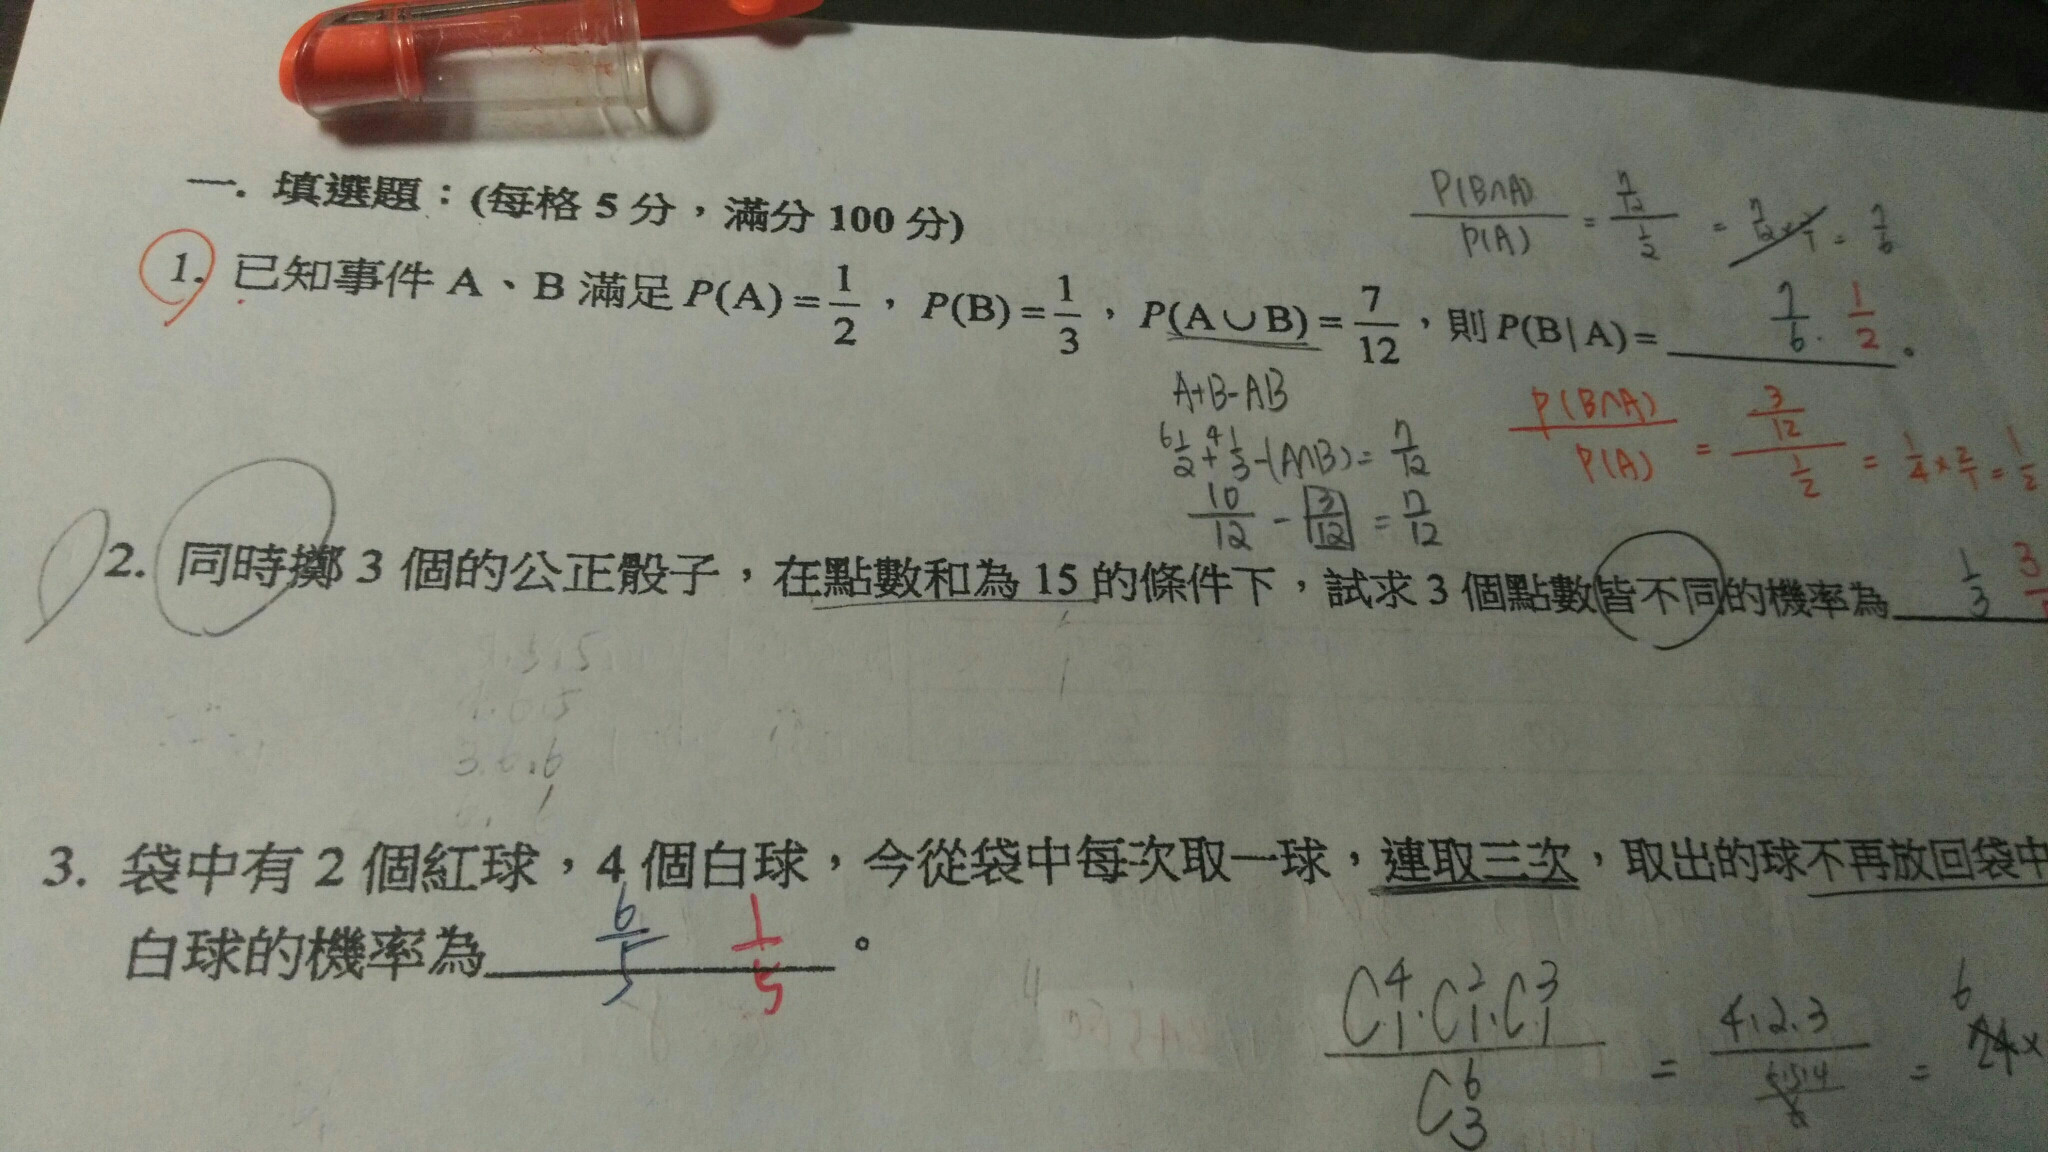 一. 填選題：(每格 5 分，滿分 100 分)
P(B∩A) / P(A) = 7/12 / 1/2 = 7/12 × 2/1 = 7/6
1. 已知事件 A、B 滿足 P(A) = 1/2，P(B) = 1/3，P(A∪B) = 7/12，則 P(B|A) = 7/6. 1/2 。
A+B-AB
6 1/2 + 4 1/3 - (A∩B) = 7/12
10/12 - 3/12 = 7/12
P(B∩A) / P(A) = 3/12 / 1/2 = 1/4 × 2/1 = 1/2
2. 同時擲 3 個的公正骰子，在點數和為 15 的條件下，試求 3 個點數皆不同的機率為 1/3 3
3.6.6
3. 袋中有 2 個紅球，4 個白球，今從袋中每次取一球，連取三次，取出的球不再放回袋中
白球的機率為 6/5 1/5 。
C⁴₁·C²₁·C³₁ / C⁶₃ = 4.2.3 / = 6 24×